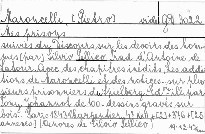 Maroncelle, (Pietro) vide 8° Z 4022
Mes prisons
suivies du Discours sur les devoirs des hom-
mes (par) Silvio Pellico. Trad. d'Antoine de
Latour. Avec des chapitres inédits. Les addi-
tions de Maroncelli et des notices sur plu-
sieurs prisonniers du Spielberg. Ed. ill. par
Tony Johannot de 100 dessins gravés sur
bois. Paris, 1843 Charpentier 4°
(Œuvres de Silvio Pellico)